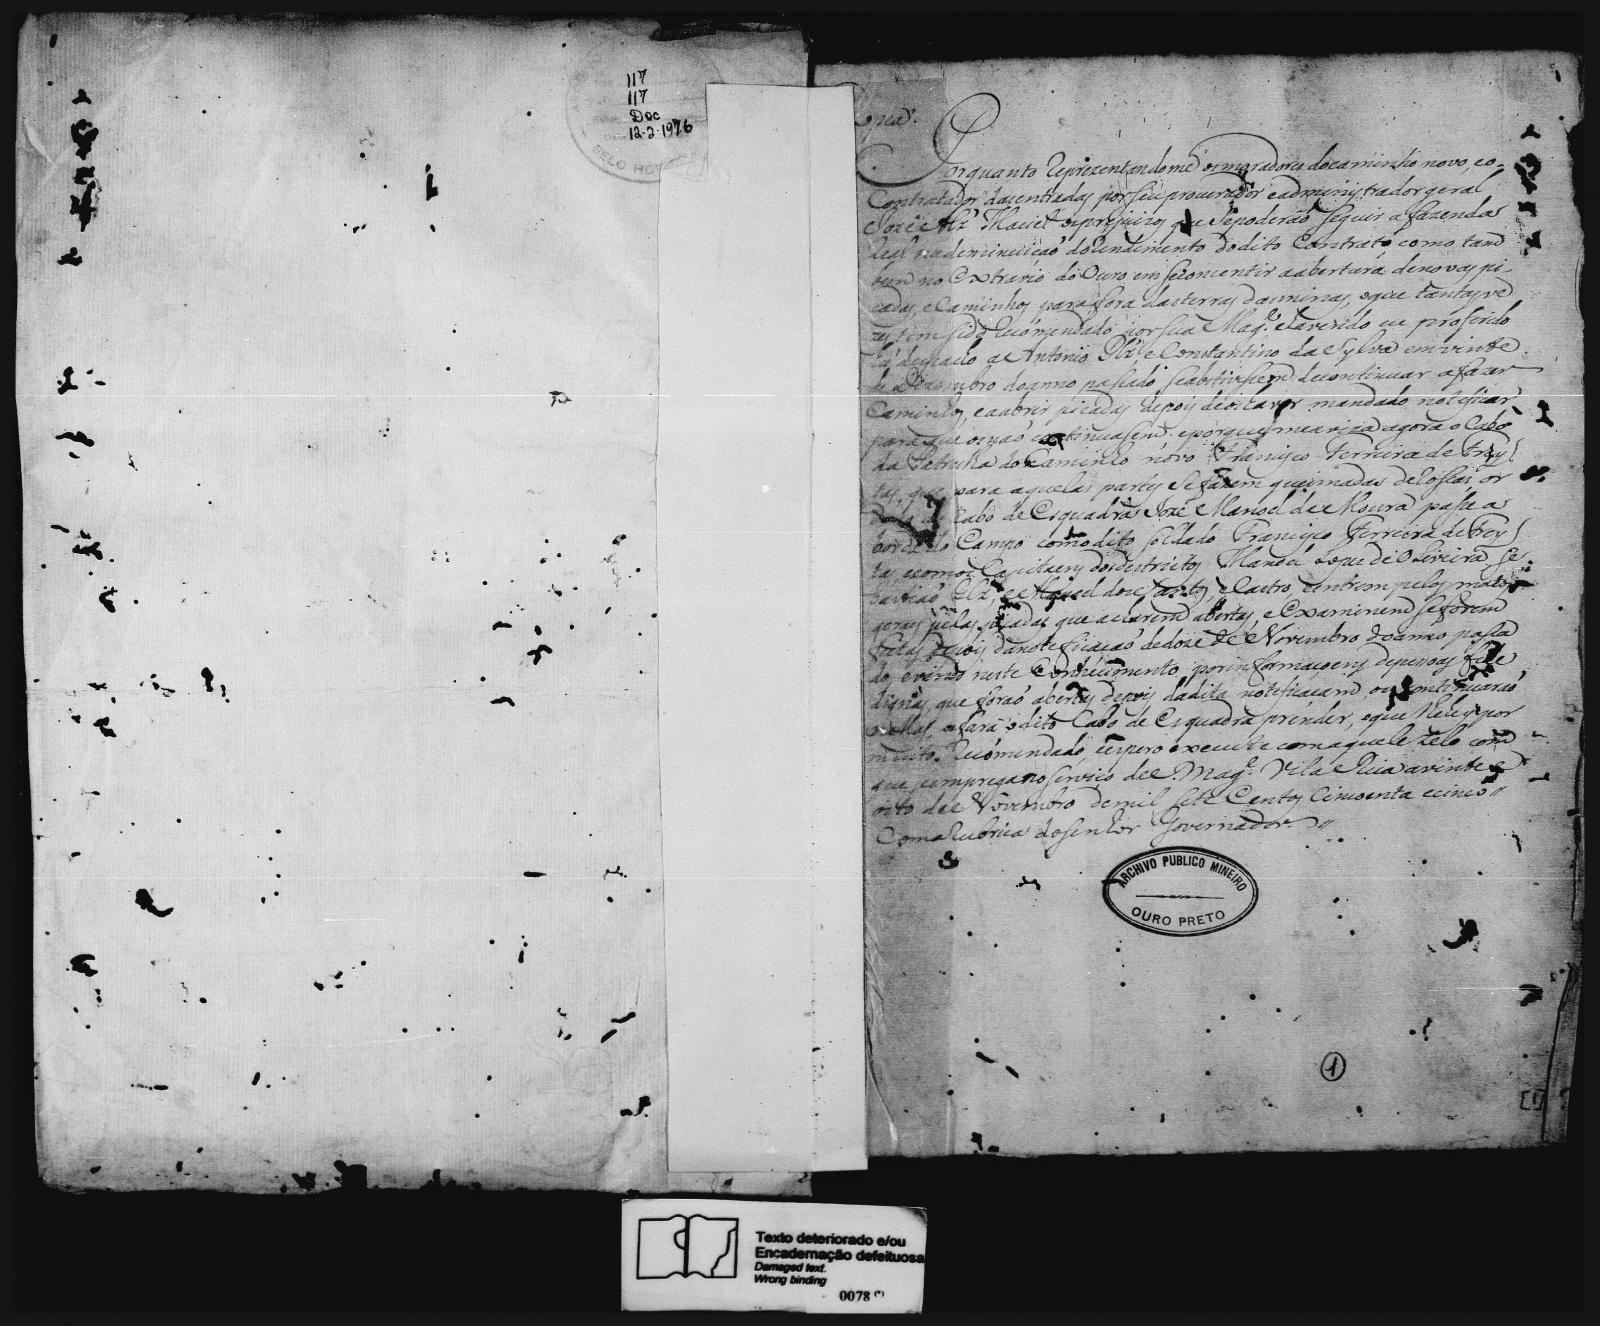 117
117
Doc
12-2-1976
BELO HO
Copia.
Porquanto reprezentandome os moradores do caminho novo, e o
Contratador das entradas por seu procurador e administrador geral
Joze Alz' Maciel os prejuizos que se poderaõ seguir a fazenda
Real na deminuiçaõ do rendimento do dito Contrato como tam
bem no Extravio do Ouro em se consentir a abertura de novas pi
cadas, e Caminhos para fora das terras das minas, o que tantas ve
zes tem sido recomendado por Sua Mag.e e haverido eu proferido
despacho a Antonio Glz', e Constantino da Sylva em vinte
de Dezembro do anno passado se abstivessem de continuar a fazer
Caminho, e a abrir picadas depois de os haver mandado notificar
para que os naõ continuasem. e porque me aviza agora o Cabo
da Patrulha do Caminho novo Francisco Ferreira de Frey
tas, que para aquelas partes se fazem queimadas de
Cabo de Esquadra Joze Manoel de Moura passe a
borda do Campo com o dito soldado Francisco Ferreira de Frey
tas, e com os Capitaens dos destrictos Manoel Lopes de Oliveira
Glz', e Manoel dos Santos, e Castro, entrem pelos matos
geraes pelas picadas que acharem abertas, e Examinem se foram
feitas depois da noteficaçaõ de doze de Novembro do anno passa
do, e vindo neste Conhecimento por informaçoens de pessoas fide
dignas, que foraõ abertas depois da dita notificacam ou continuaraõ
o fará o dito Cabo de Esquadra prender, o que lhe hey por
muito Recomendado, e espero execute com aquele zelo com
que se emprega no serviço de S. Mag.e Vila Rica a vinte e
oito de Novembro de mil sete Centos Cincoenta e cinco //
Com a Rubrica do Senhor Governador. //
ARCHIVO PUBLICO MINEIRO
OURO PRETO
1
[1]
Texto deteriorado e/ou
Encadernação defeituosa
Damaged text.
Wrong binding
0078